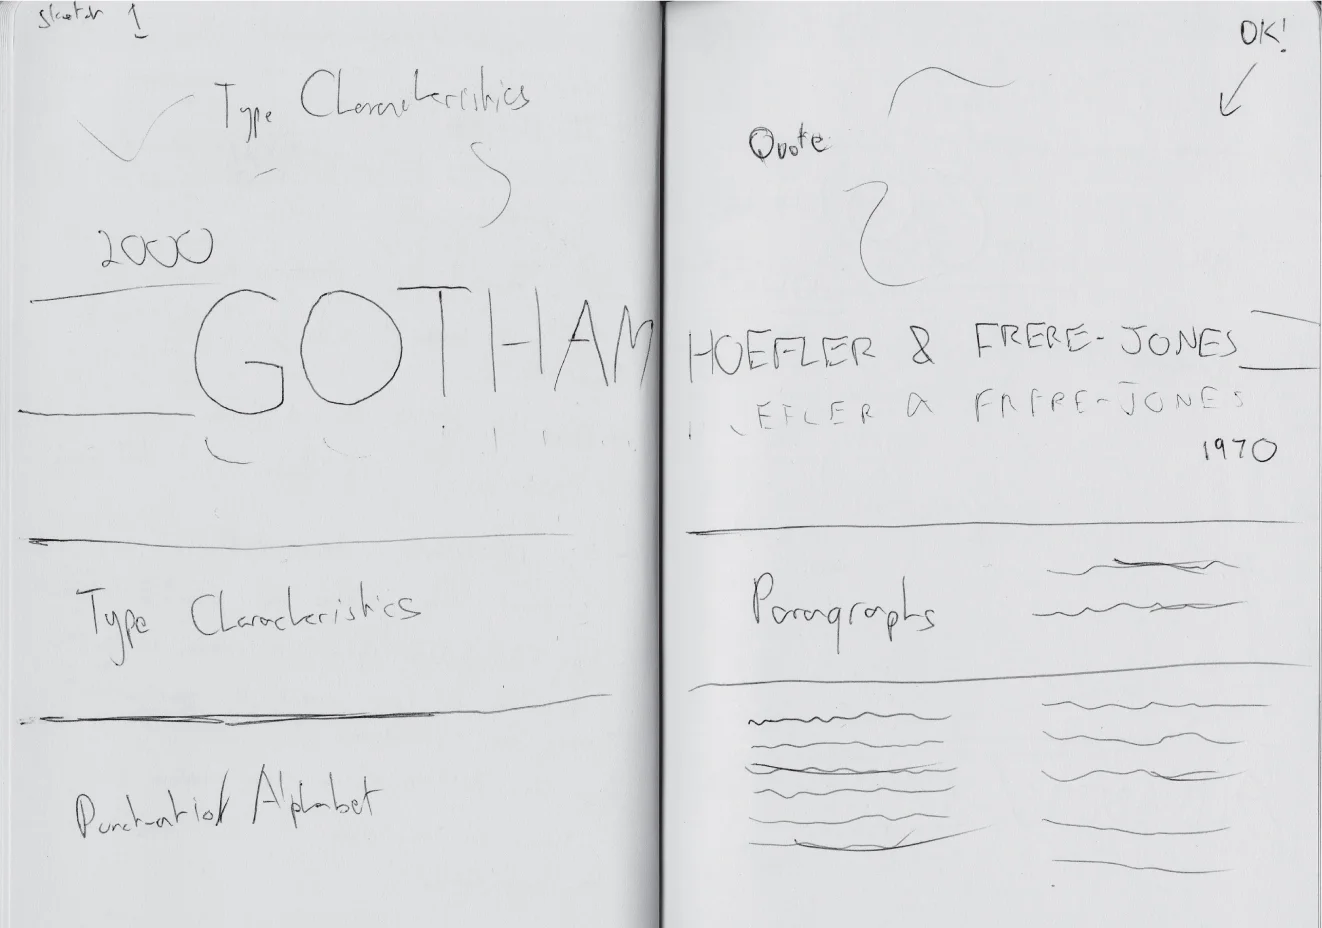 Sketch 1
Type Characteristics
2000
GOTHAM
Type Characteristics
Punctuation/ Alphabet
OK!
Quote
HOEFLER & FRERE-JONES
EFLER & FRERE-JONES
1970
Paragraphs